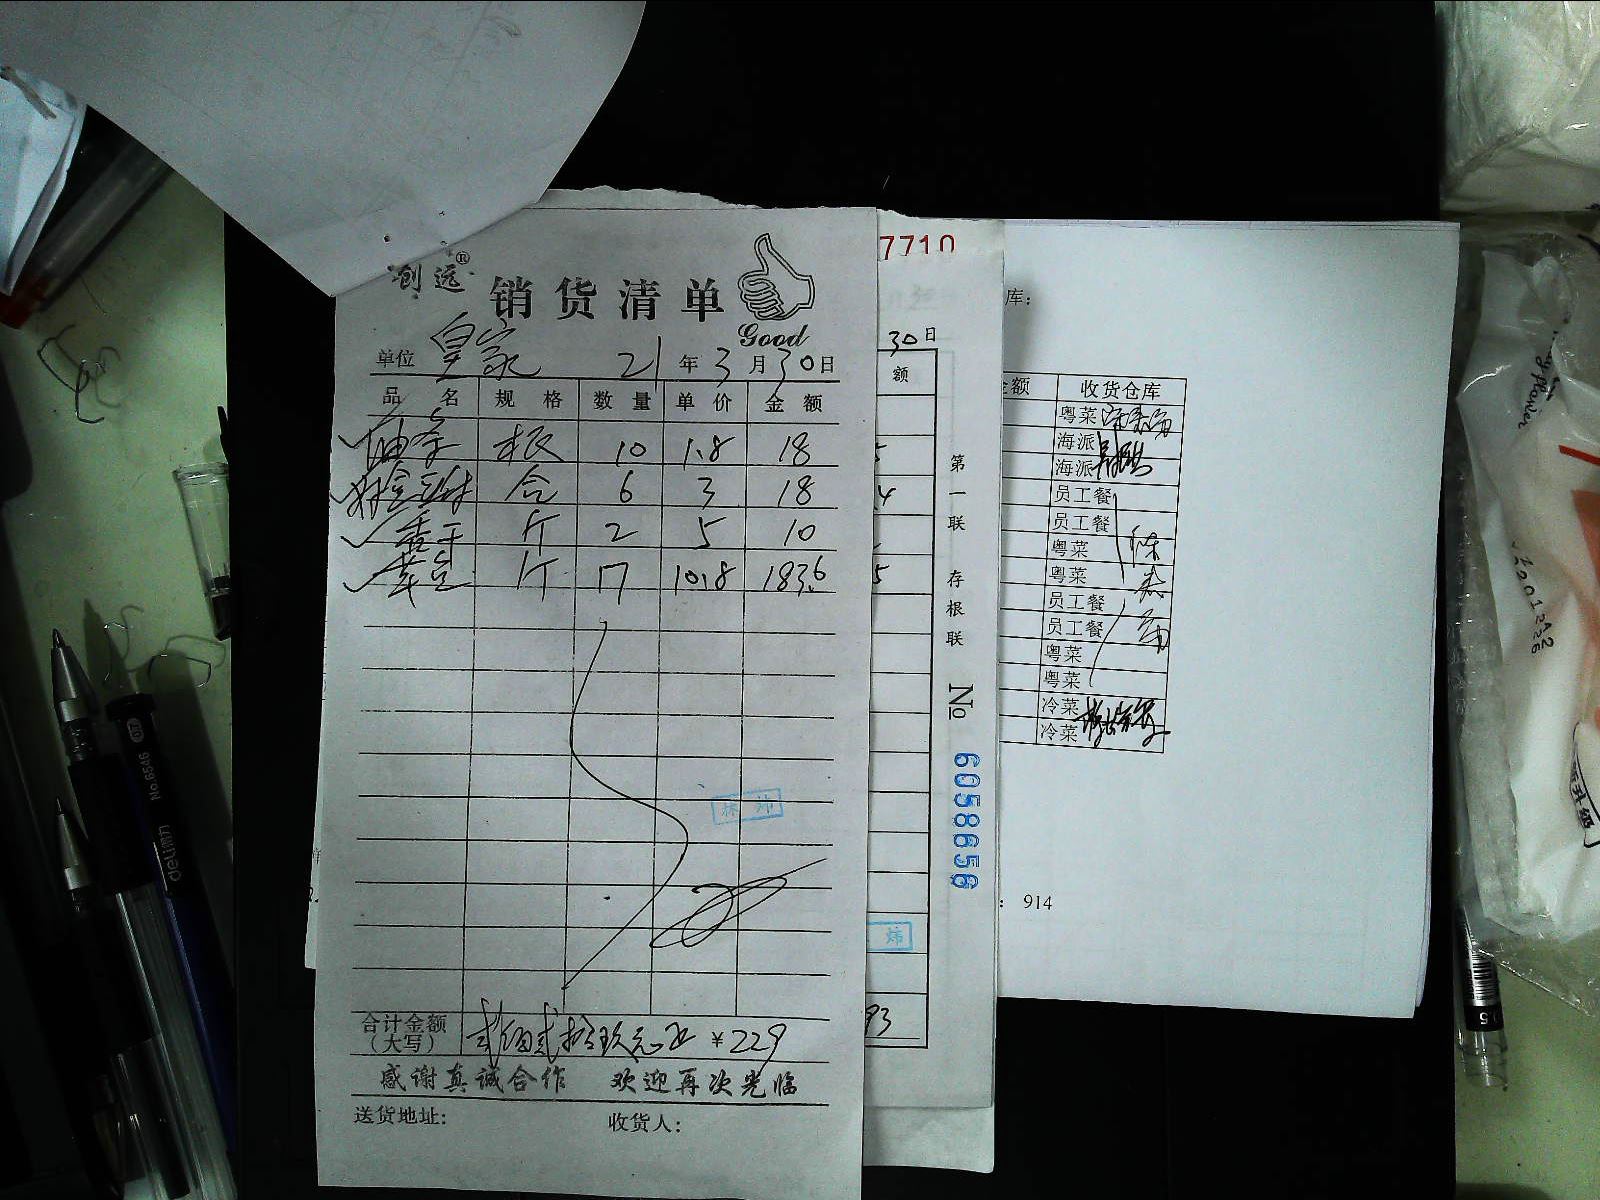 创远®
销货清单
Good
单位 皇家 21年3月30日
品名 规格 数量 单价 金额
油条 根 10 1.8 18
合 6 3 18
香干 斤 2 5 10
斤 17 10.8 183.6
合计金额(大写) 贰佰贰拾玖元正 ¥229
感谢真诚合作 欢迎再次光临
送货地址: 收货人:
7710
30日
额
第一联 存根联
№ 6058656
炜
93
库:
金额 收货仓库
粤菜
海派
海派
员工餐
员工餐
粤菜
粤菜
员工餐
员工餐
粤菜
粤菜
冷菜
冷菜
: 914
No.6546
deli